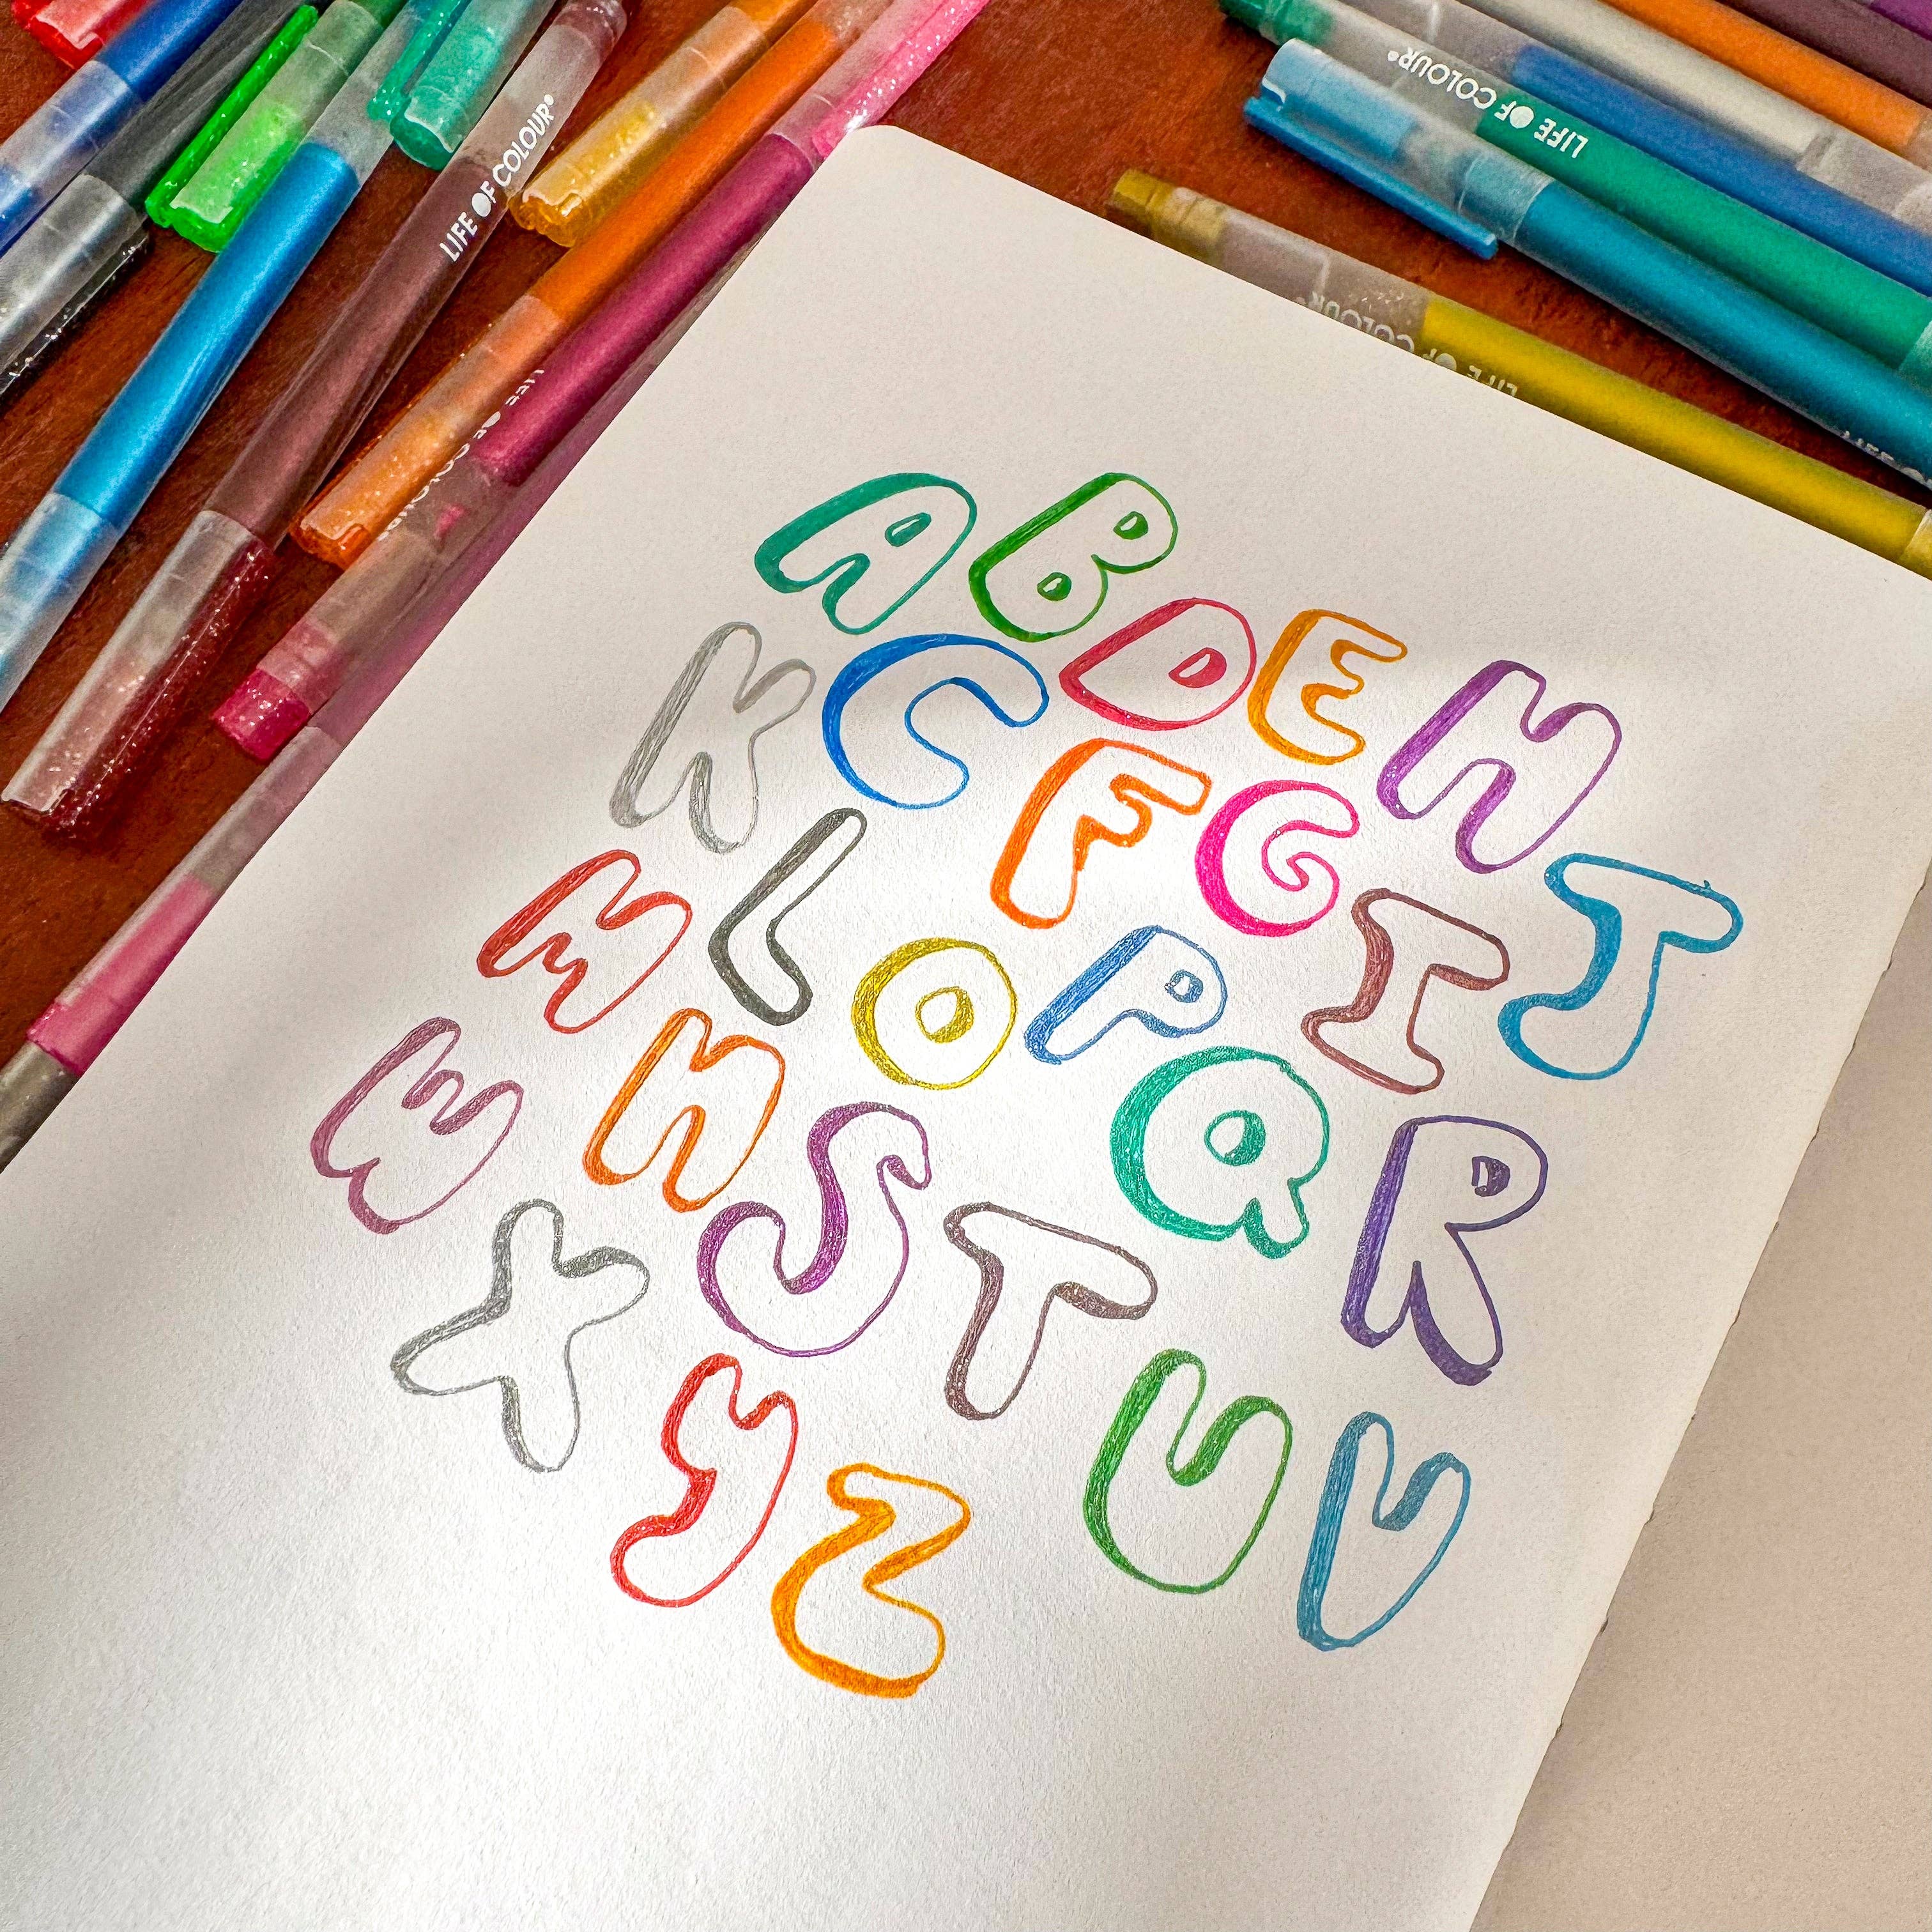 LIFE OF COLOUR®
LIFE OF COLOUR®
LIFE OF COLOUR
LIFE OF COLOUR®
A B
C D E
F G H
I J
K L
M N
O P
Q R
S T
U V
W X
Y Z